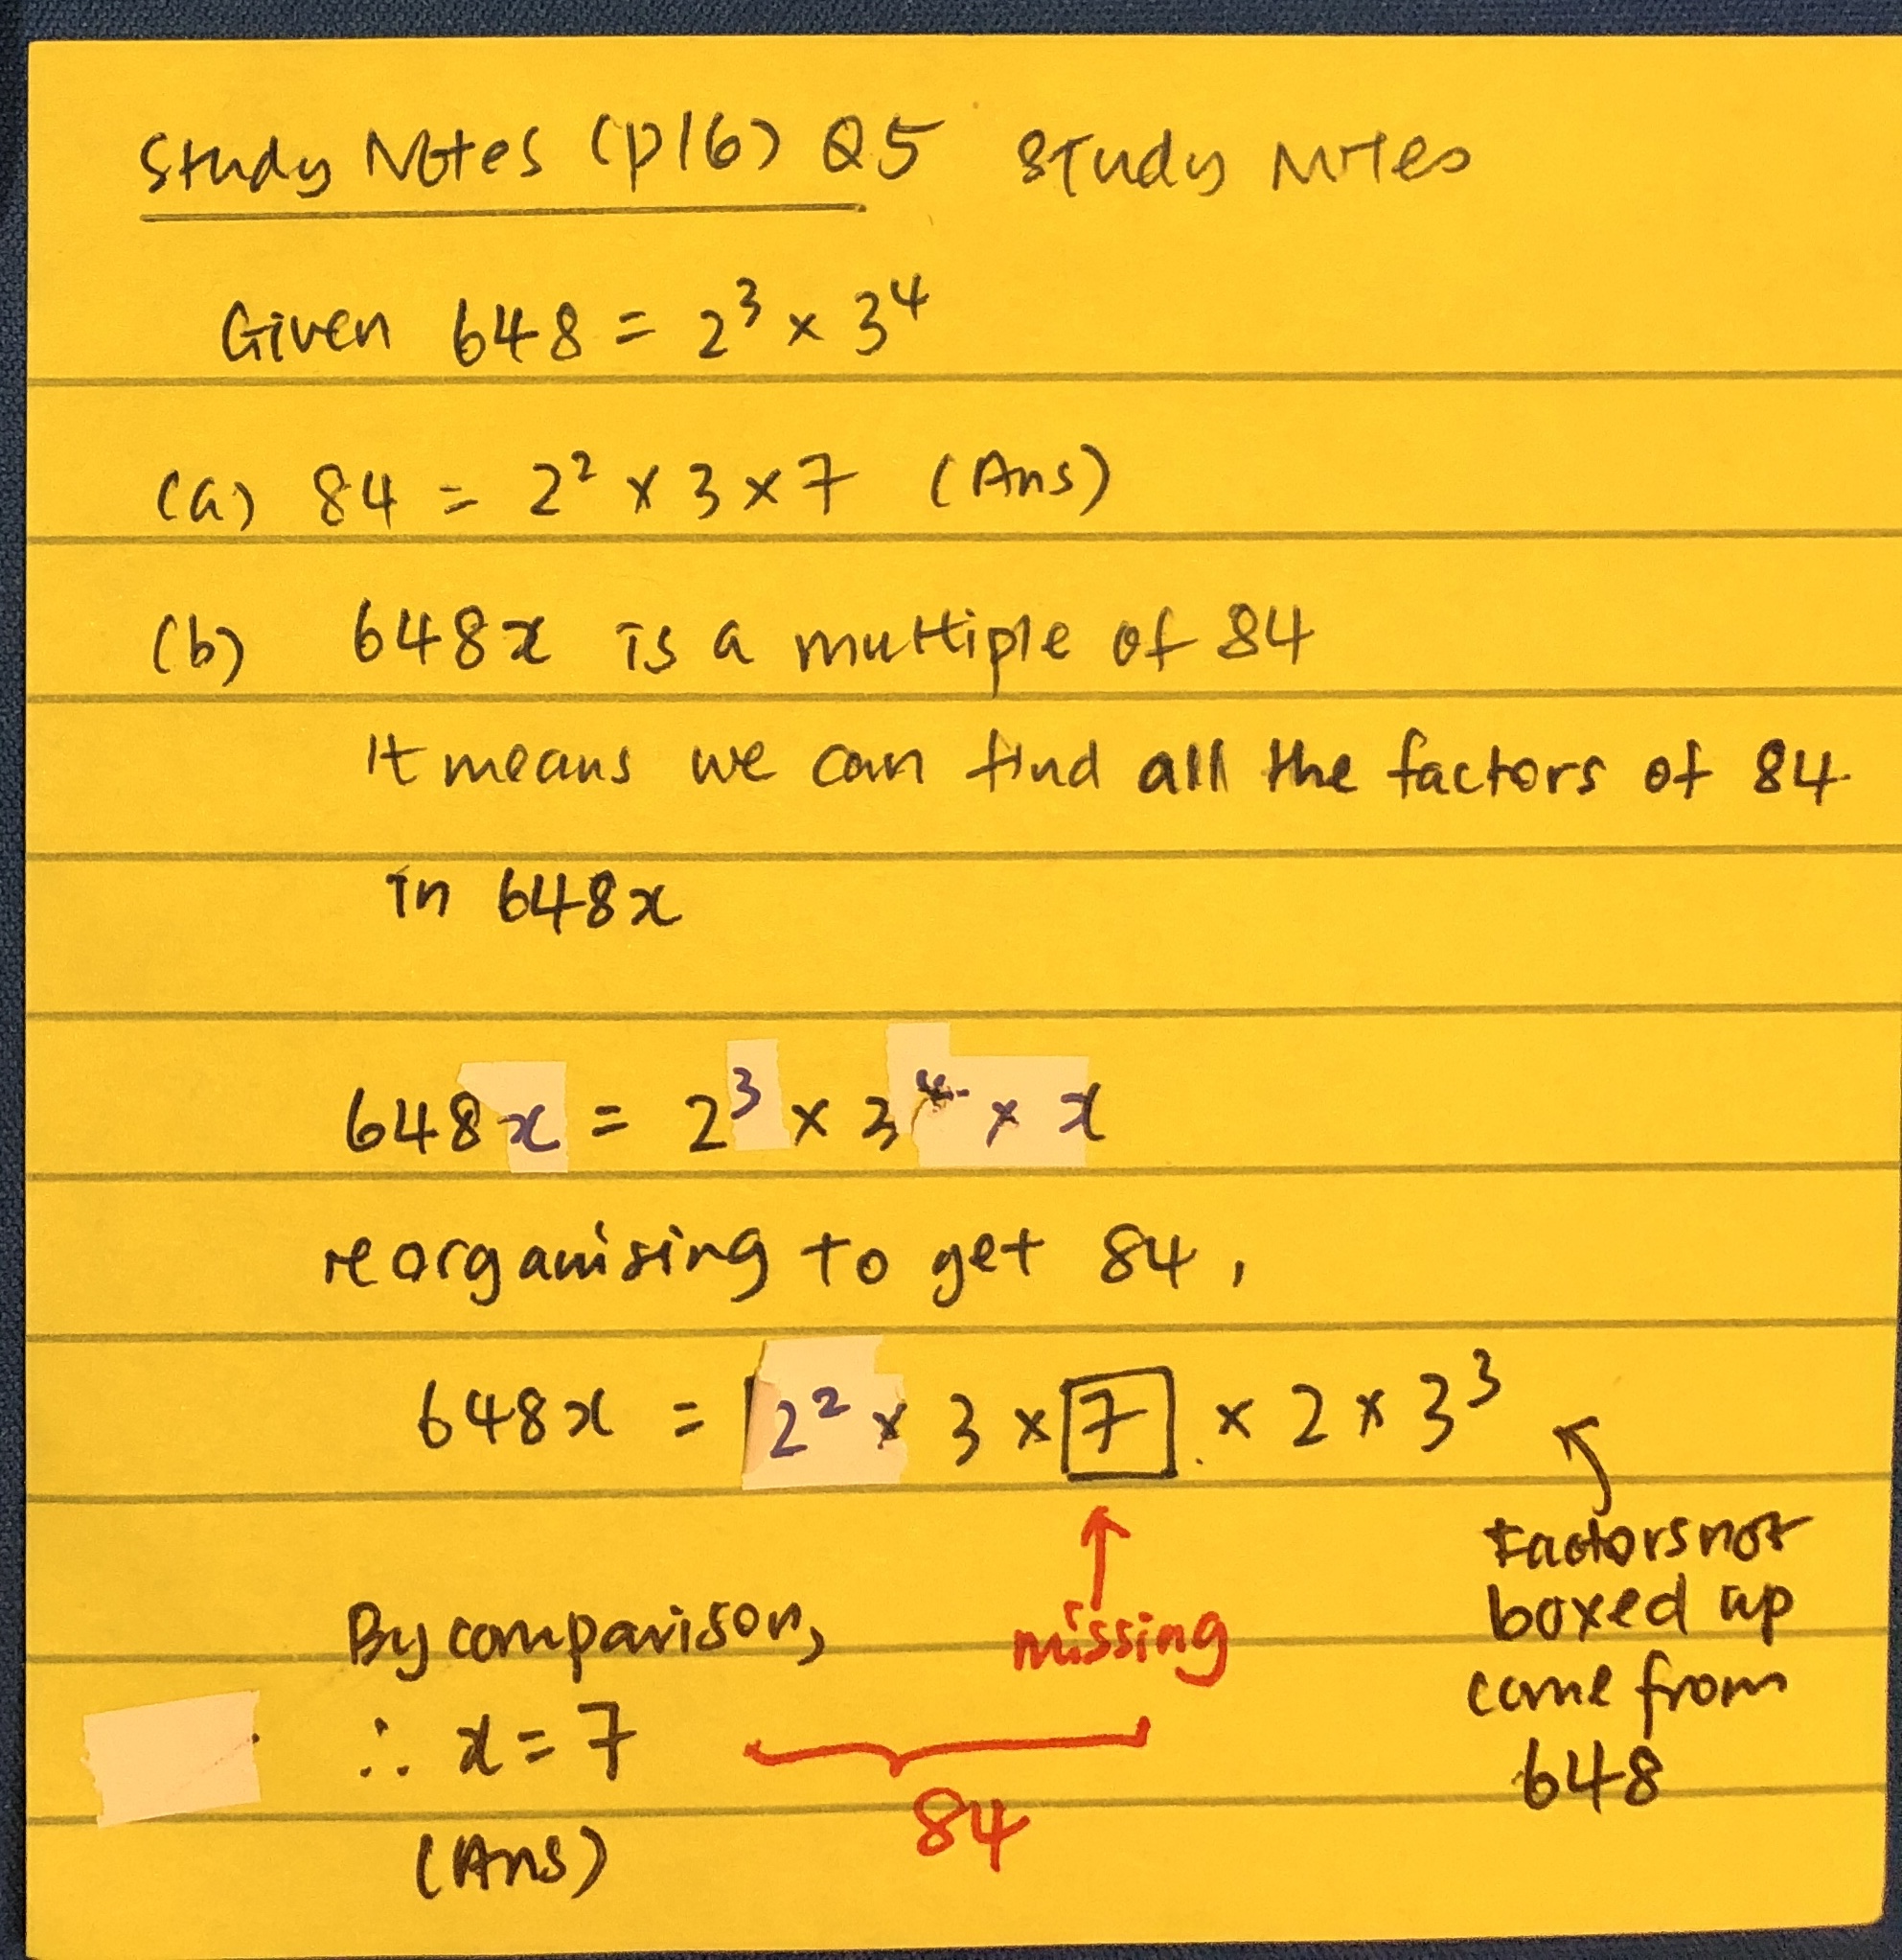 Study Notes (p16) Q5 Study Notes
Given 648 = 2³ × 3⁴
(a) 84 = 2² × 3 × 7 (Ans)
(b) 648x is a multiple of 84
It means we can find all the factors of 84
in 648x
648x = 2³ × 3⁴ × x
reorganising to get 84,
648x = 2² × 3 × 7 × 2 × 3³
missing
Factors not
boxed up
come from
648
By comparison,
∴ x = 7
84
(Ans)